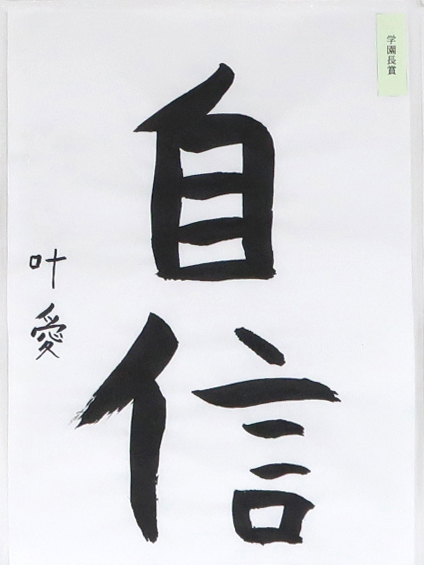 学園長賞
自信
叶愛